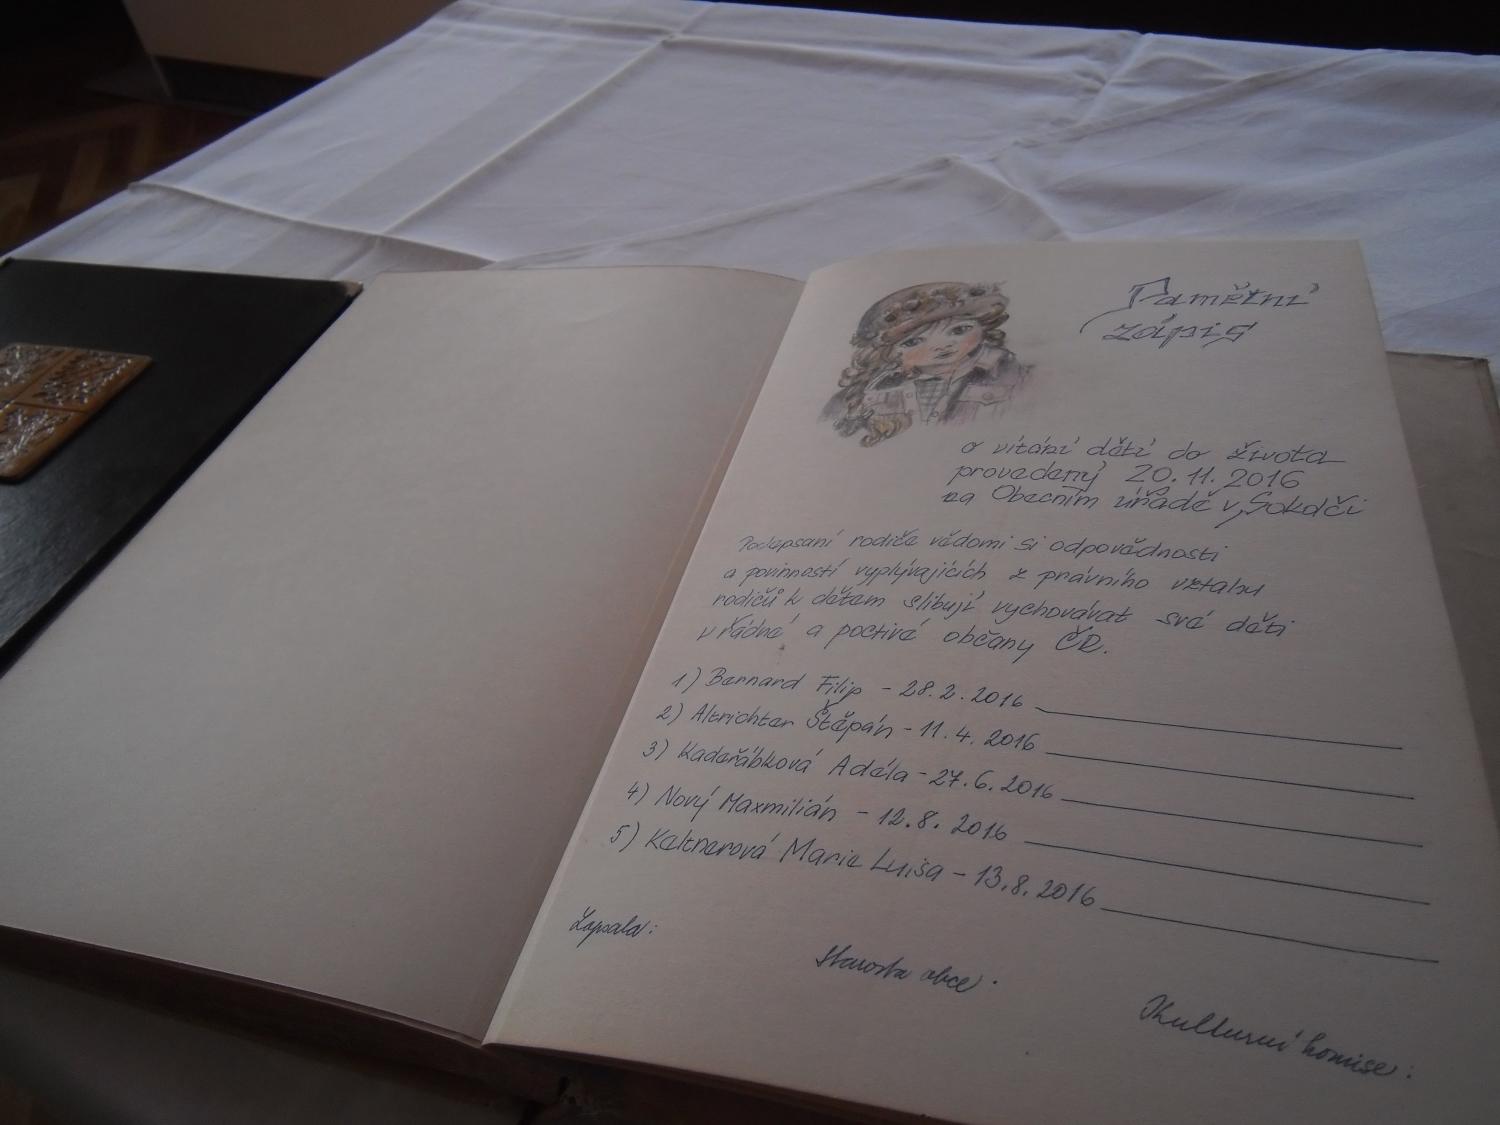 Pamětní
zápis
o vítání dětí do života
provedený 20.11.2016
na Obecním úřadě v Sokolči
Podepsaní rodiče vědomi si odpovědnosti
a povinností vyplývajících z právního vztahu
rodičů k dětem slibují vychovávat své děti
v řádné a poctivé občany ČR.
1) Bernard Filip - 28.2.2016
2) Altrichter Štěpán - 11.4.2016
3) Kadeřábková Adéla - 27.6.2016
4) Nový Maxmilián - 12.8.2016
5) Keltnerová Marie Luisa - 13.8.2016
Zapsala:
Starosta obce:
Kulturní komise: